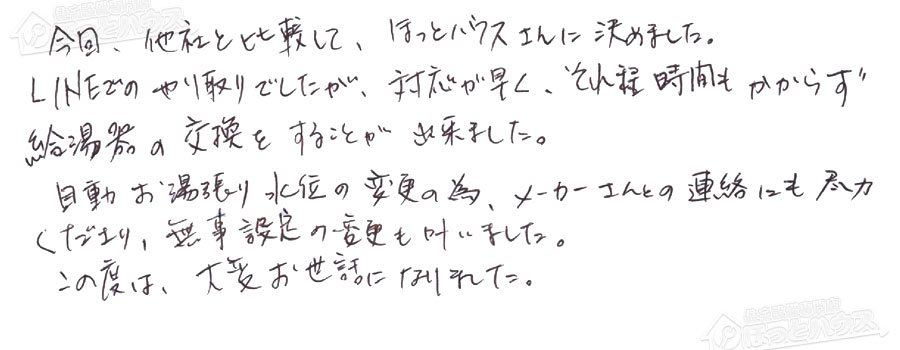 今回、他社と比較して、ほっとハウスさんに決めました。
LINEでのやり取りでしたが、対応が早く、それ程時間もかからず
給湯器の交換をすることが出来ました。
自動お湯張り水位の変更の為、メーカーさんとの連絡にも尽力
くださり、無事設定の変更も叶いました。
この度は、大変お世話になりました。
住宅設備専門店
ほっとハウス
住宅設備専門店
ほっとハウス